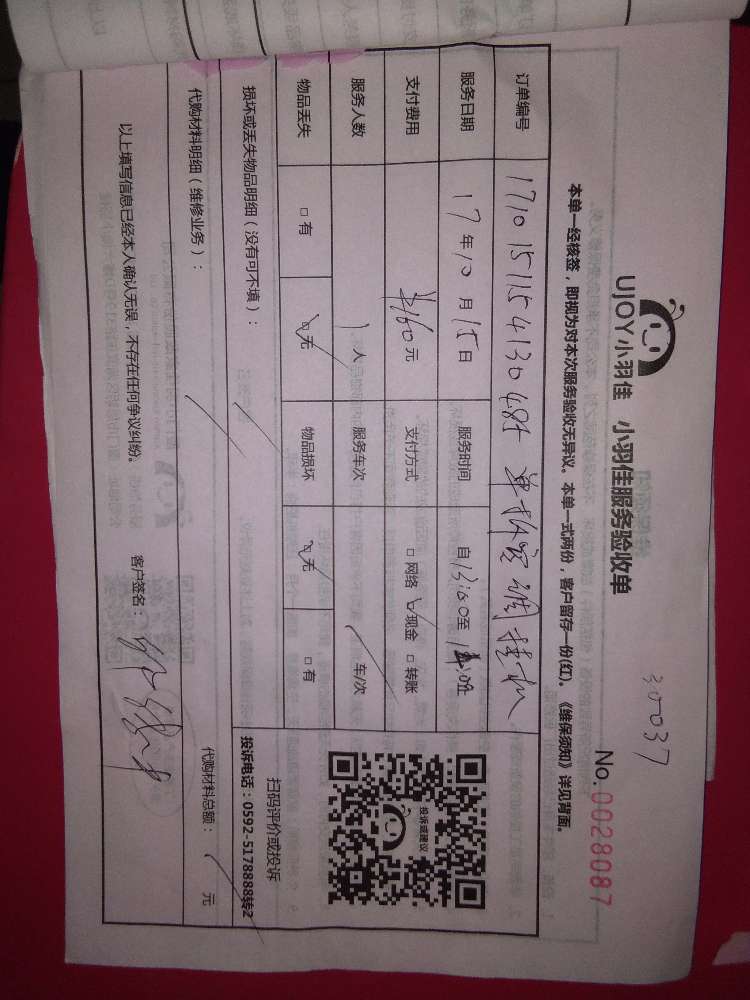 300037
UJOY小羽佳 小羽佳服务验收单
No.0028087
本单一经核签，即视为对本次服务验收无异议。本单一式两份，客户留存一份(红)。《维保须知》详见背面。
订单编号 171015115413048 单拆空调挂机
服务日期 17年10月15日 服务时间 自13:00至
支付费用 160元 支付方式 □网络 ☑现金 □转账
服务人数 1人 服务车次 / 车/次
物品丢失 □有 ☑无 物品损坏 ☑无 □有
投诉或建议
扫码评价或投诉
投诉电话：0592-5178888转2
损坏或丢失物品明细（没有可不填）： /
代购材料明细（维修业务）： / 代购材料总额： / 元
以上填写信息已经本人确认无误，不存在任何争议纠纷。 客户签名：